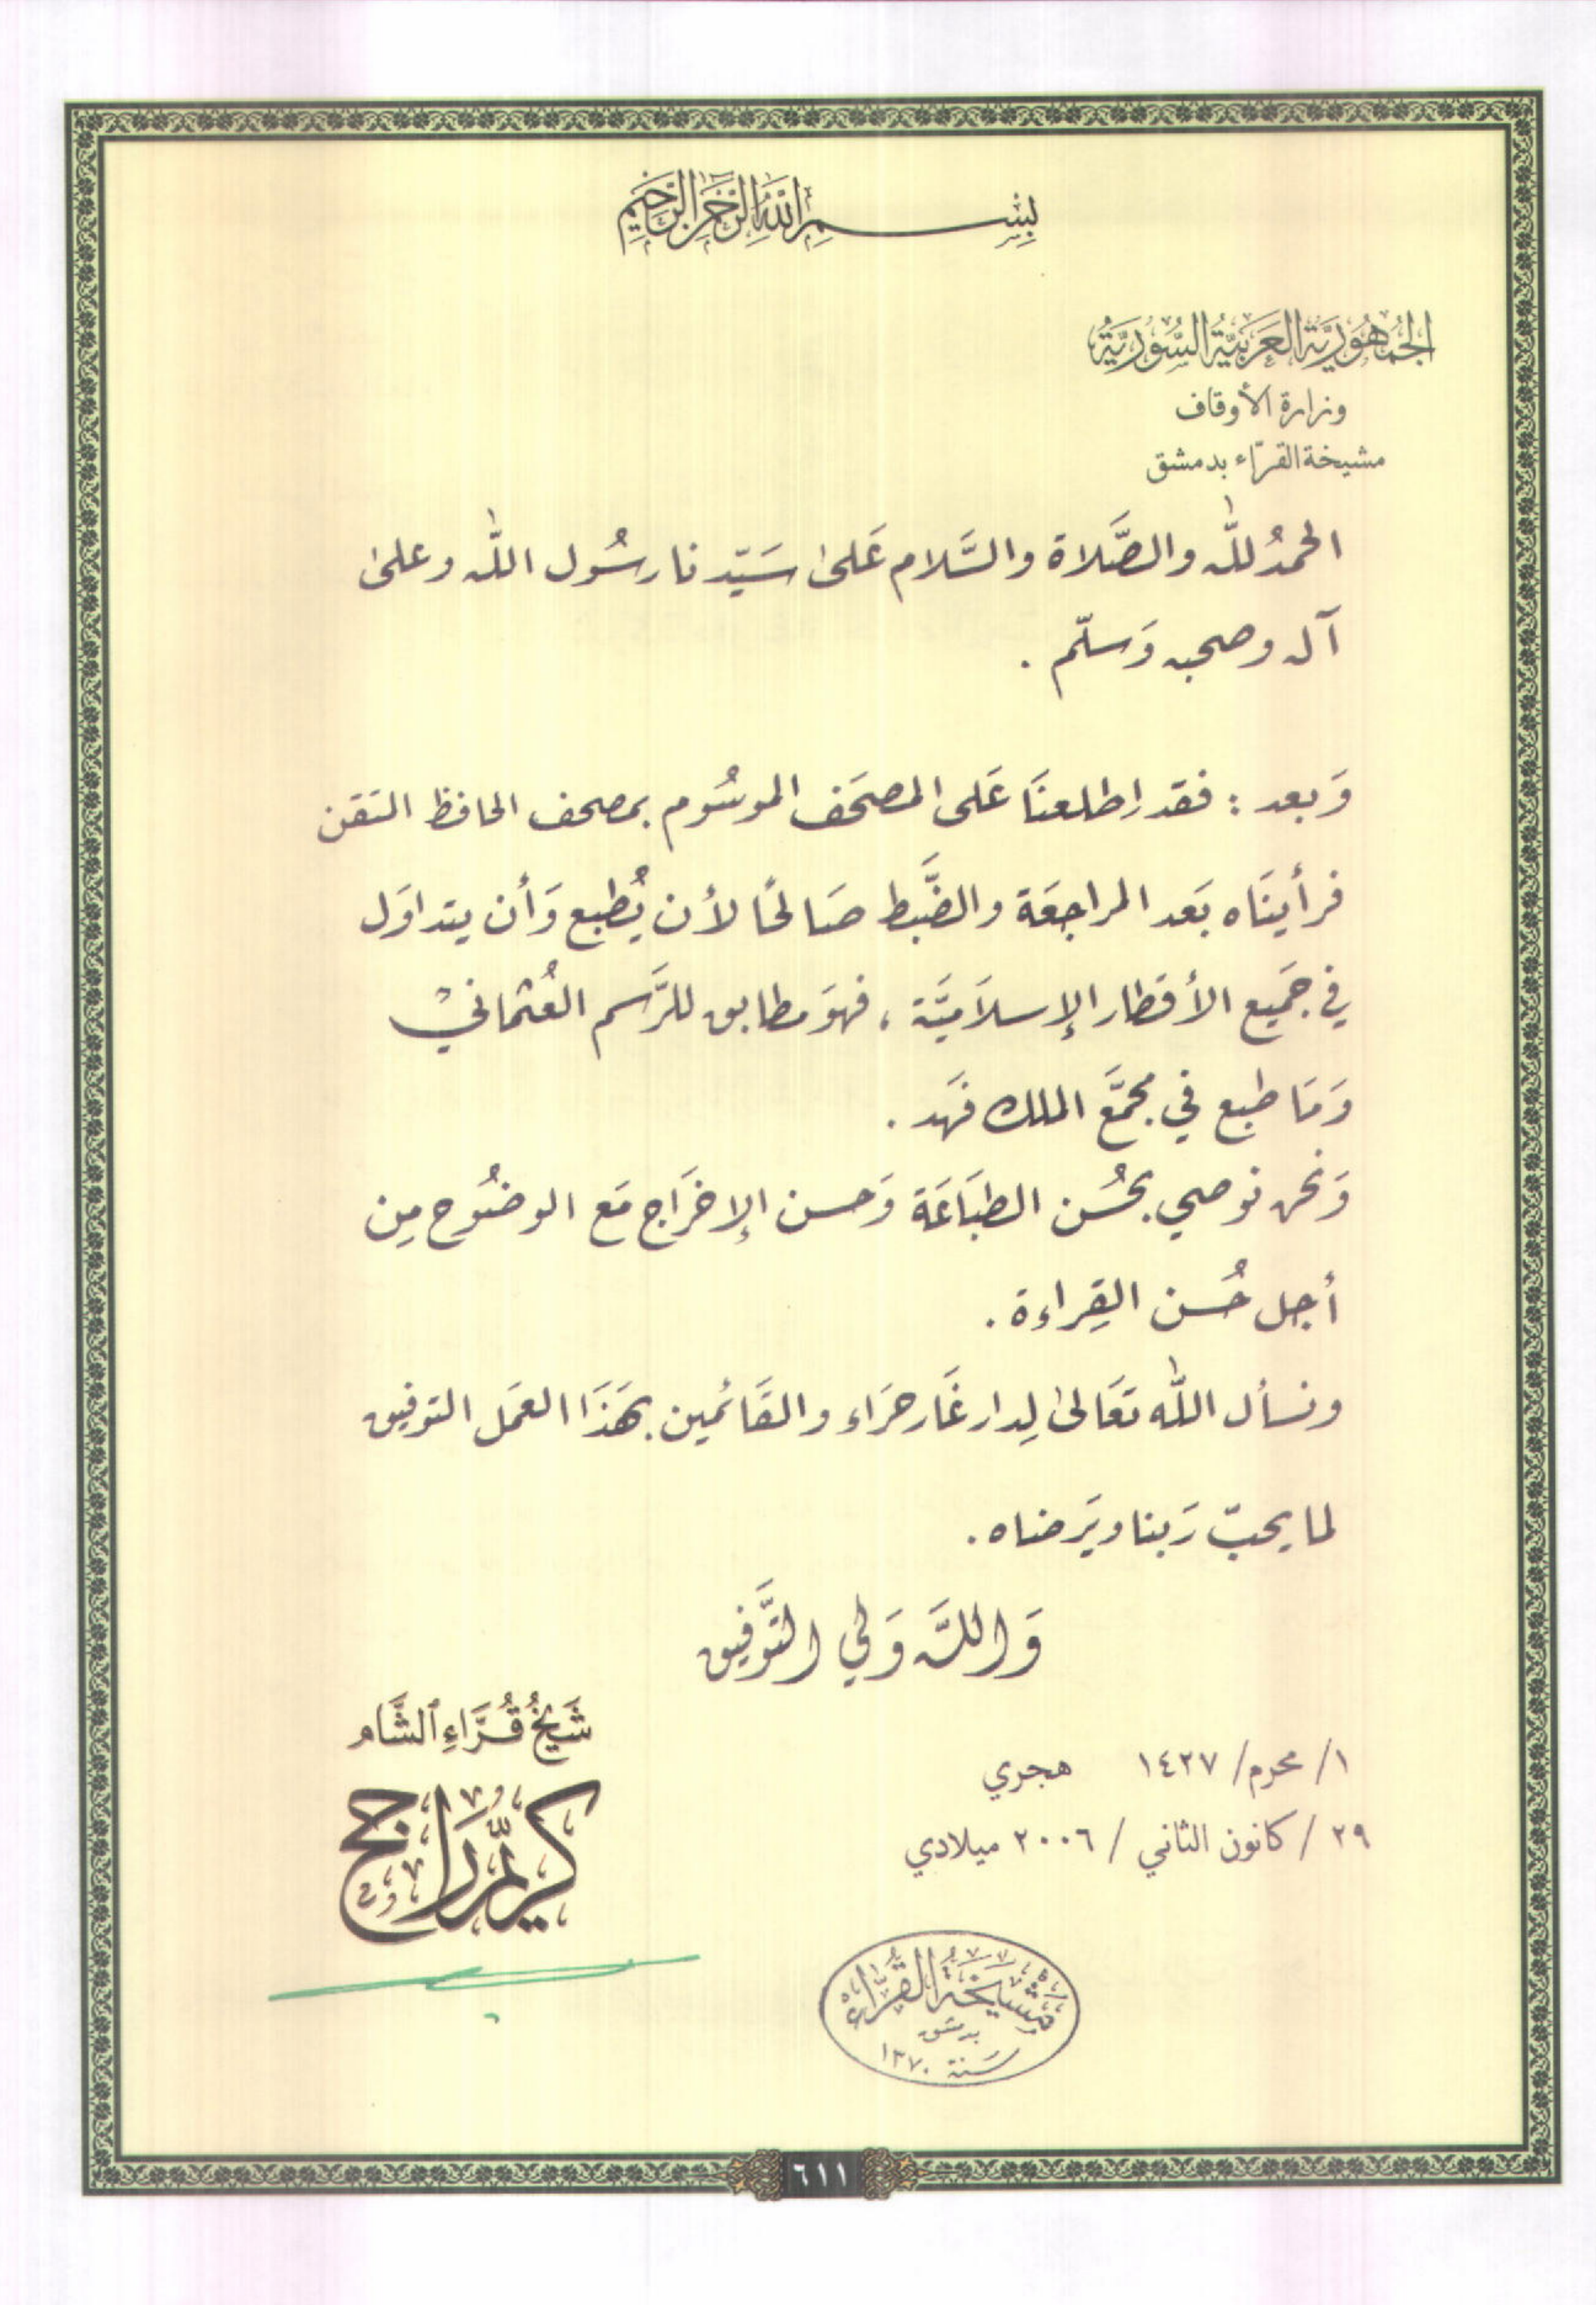 بِسْمِ اللَّهِ الرَّحْمَنِ الرَّحِيمِ
الجُمْهُوريَّة العَرَبيَّة السُّوريَّة
وزارة الأوقاف
مشيخة القرّاء بدمشق
الحمدُ للّٰه والصَّلاة والسَّلام عَلىٰ سَيّدنا رسُول اللّٰه وعلىٰ
آله وصحبه وَسلّم .
وَبعد : فقد اطلعنَا عَلى المصحَف الموسُوم بمصحف الحافظ المتقن
فرأينَاه بَعد المراجعَة والضَّبط صَالحًا لأن يُطبع وَأن يتداوَل
في جَميع الأقطار الإسلاَميَّة ، فهوَ مطابق للرَّسم العُثمانيْ
وَمَا طبع في مجمَّع الملك فهَد .
وَنحن نوصي بحُسَن الطبَاعَة وَحسن الإخرَاج مَع الوضُوح مِن
أجل حُسَن القِراءة .
ونسأل اللّٰه تعَالىٰ لِدار غَار حرَاء والقَائمين بهَذَا العمَل التوفيق
لما يحبّ رَبنا ويَرضاه .
وَاللَّه وَلي التَّوفيق
شَيْخُ قُرَّاءِ ٱلشَّام
كريّم راجح
١/ محرم/ ١٤٢٧ هجري
٢٩ / كانون الثاني / ٢٠٠٦ ميلادي
مَشْيَخَةُ القُرَّاءِ
بدمشق
سَنة ١٣٧٠
٦١١